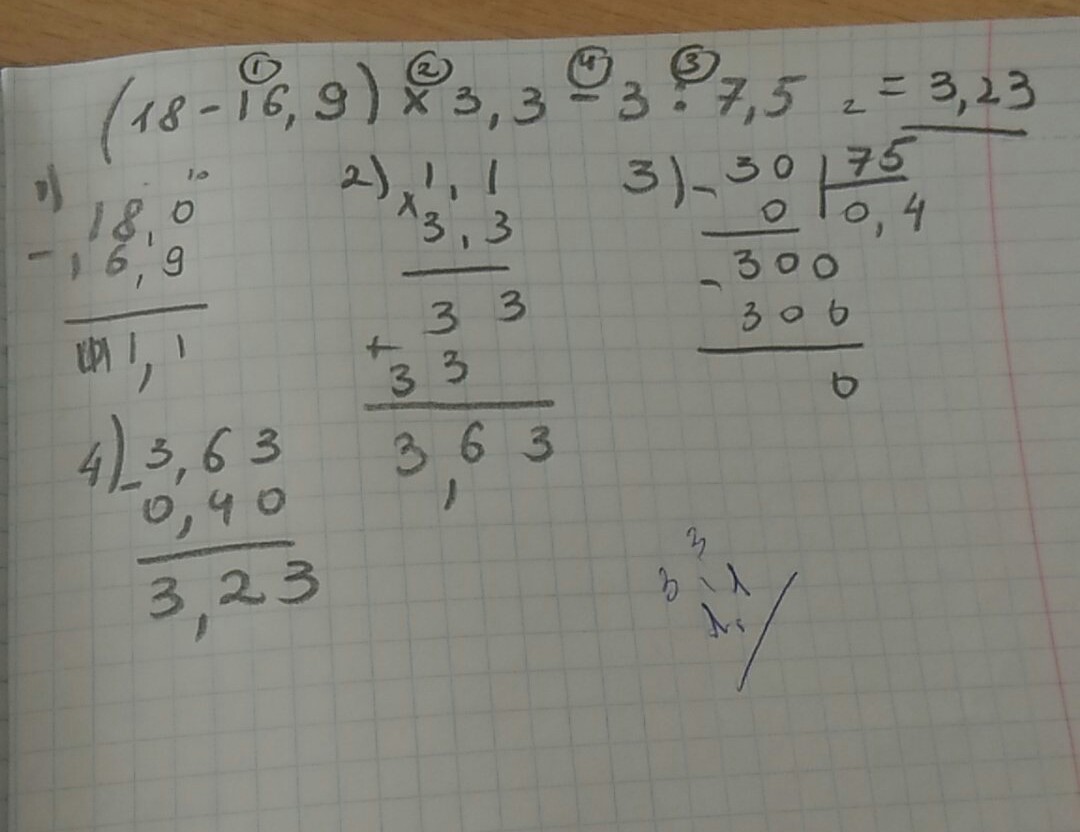 ① ② ④ ③
(18 - 16,9) × 3,3 - 3 : 7,5 = = 3,23
1)
10
18,0
- 16,9
1,1
2) × 1,1
3,3
3 3
+
3 3
3,6 3
3) - 30 | 75
0 | 0,4
- 300
300
0
4) - 3,63
0,40
3,23
3
3